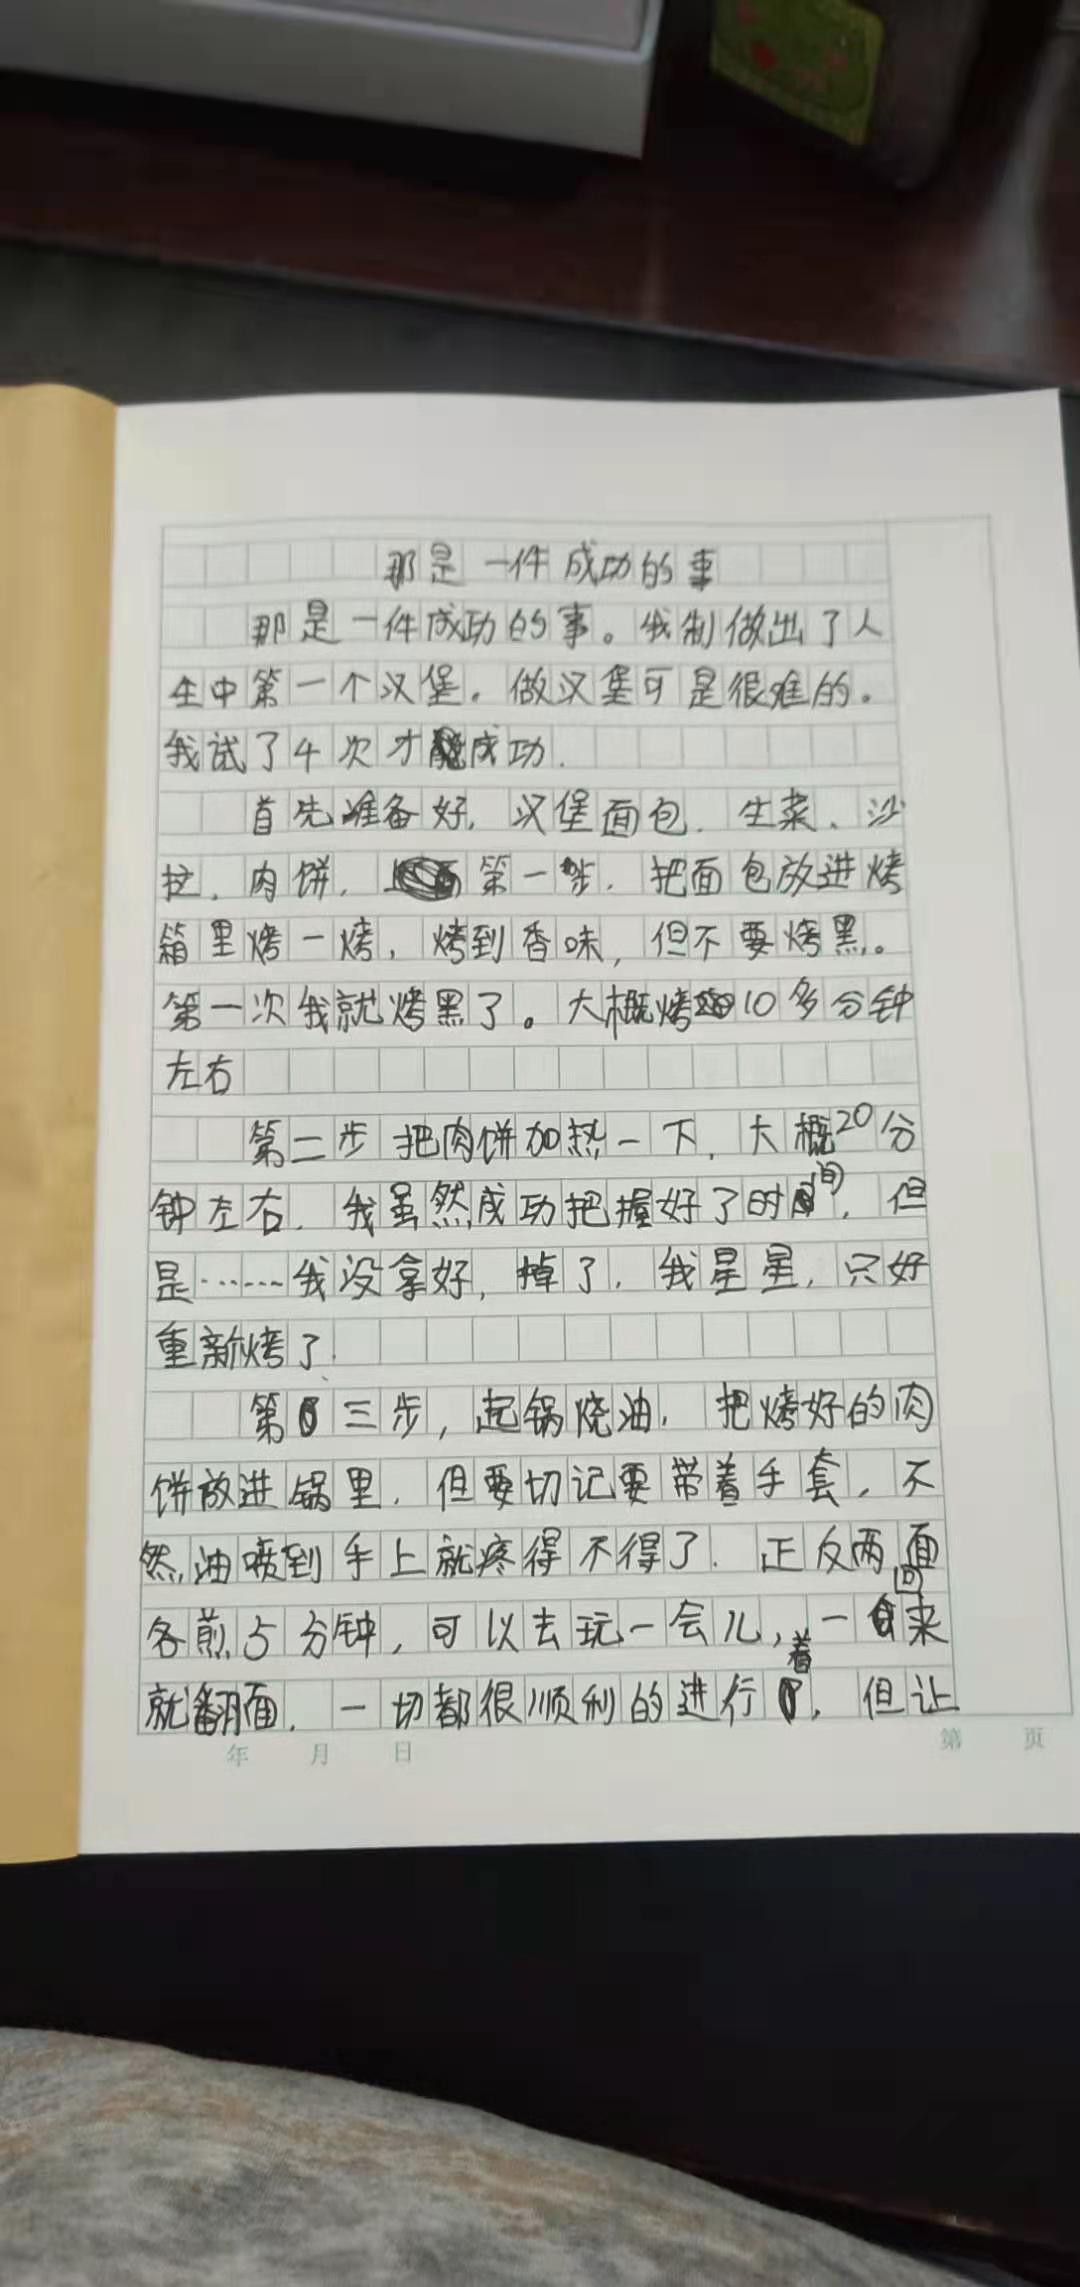 那是一件成功的事
那是一件成功的事。我制做出了人
生中第一个汉堡。做汉堡可是很难的。
我试了4次才成功.
首先准备好,汉堡面包.生菜、沙
拉.肉饼.第一步.把面包放进烤
箱里烤一烤,烤到香味,但不要烤黑。
第一次我就烤黑了。大概烤10多分钟
左右
第二步把肉饼加热一下,大概20分
钟左右.我虽然成功把握好了时间,但
是……我没拿好,掉了.我星星,只好
重新烤了.
第三步,起锅烧油.把烤好的肉
饼放进锅里.但要切记要带着手套,不
然,油喷到手上就疼得不得了.正反两面
各煎5分钟,可以去玩一会儿,一回来
就翻面.一切都很顺利的进行着.但让
年 月 日 第 页